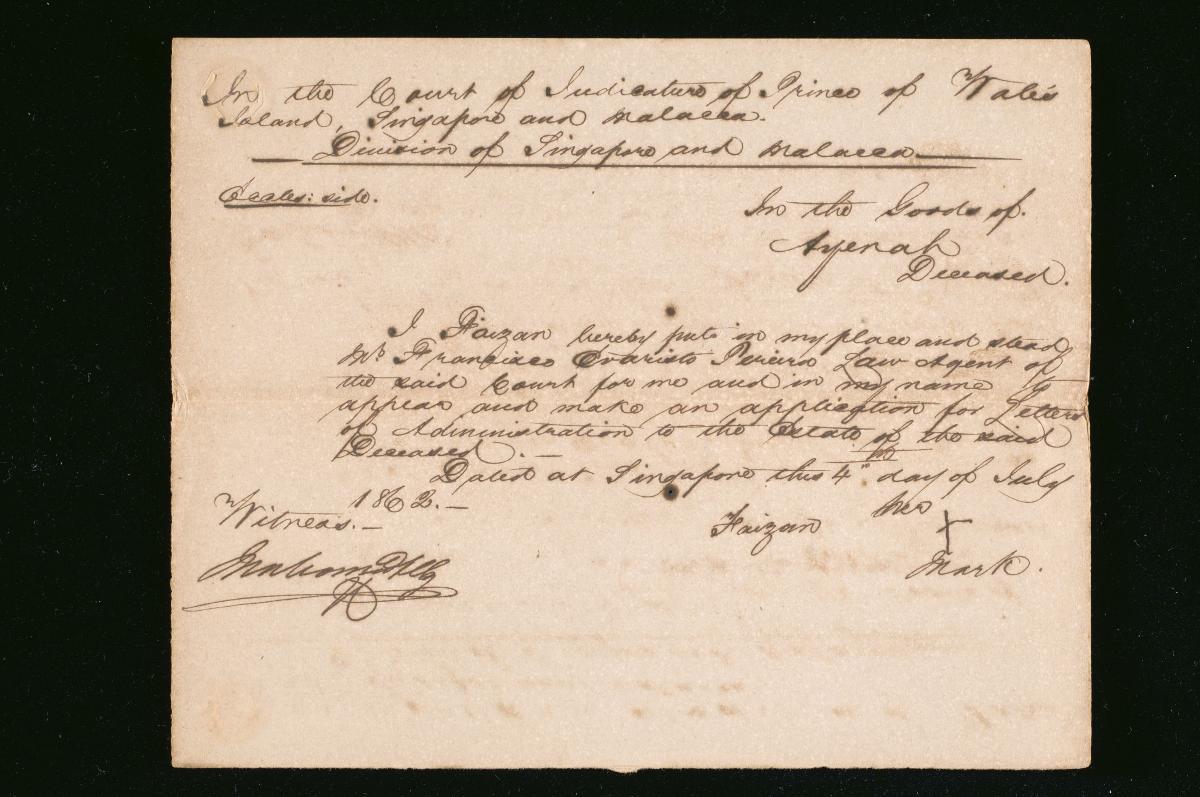 In the Court of Judicature of Prince of Wales
Island, Singapore and Malacca.
Division of Singapore and Malacca
Eccles: side.
In the Goods of.
Ayenah
Deceased.
I Faizan hereby put in my place and stead
Mr Francisco Evaristo Pereira Law Agent of
the said Court for me and in my name to
appear and make an application for Letters
of Administration to the Estate of the said
Deceased. —
Dated at Singapore this 4th day of July
1862. —
Witness. —
Faizan her X
Mark.